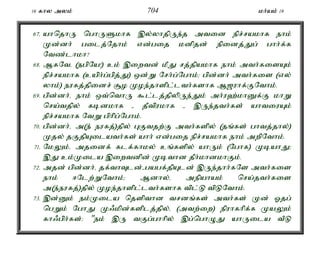 16 கால அலம் 704 மர்யம் 19
67. யாதொரு பொருளுமாக இல்லாதிருந்த அவனை நிச்சயமாக நாம்
முன்னர் படைத்தோம் என்பதை மனிதன் நினைத்துப் பார்க்க
வேண்டாமா?
68. ஆகவே (நபியே!) உம் இறைவன் மீது சத்தியமாக நாம் அவர்களையும்
நிச்சயமாக (உயிர்ப்பித்து) ஒன்று சேர்ப்போம்; பின்னர் அவர்களை (எல்
லாம்) நரகத்தினைச் சூழ முழந்தாளிட்டவர்களாக ஆஜராக்குவோம்.
69. பின்னர், நாம் ஒவ்வொரு கூட்டத்திலிருந்தும் அர்ரஹ்மானுக்கு மாறு
செய்வதில் கடினமாக - தீவிரமாக - இருந்தவர்கள் யாவரையும்
நிச்சயமாக வேறு பிரிப்போம்.
70. பின்னர், அ(ந் நரகத்)தில் புகுவதற்கு அவர்களில் (தங்கள் பாவத்தால்)
முதல் தகுதியுடையவர்கள் யார் என்பதை நிச்சயமாக நாம் அறிவோம்.
71. மேலும், அதனைக் கடக்காமல் உங்களில் யாரும் (போக) முடியாது;
இது உம்முடைய இறைவனின் முடிவான தீர்மானமாகும்.
72. அதன் பின்னர், தக்வாவுடன்-பயபக்தியுடன் இருந்தார்களே அவர்களை
நாம் ஈடேற்றுவோம்; ஆனால், அநியாயம் செய்தவர்களை
அ(ந்நரகத்)தில் முழந்தாளிட்டவர்களாக விட்டு விடுவோம்.
73. இன்னும் நம்முடைய தெளிவான வசனங்கள் அவர்கள் முன் ஓதப்
பெறும் போது மூஃமின்களிடத்தில், (அவற்றை) நிராகரிக்க முயலும்
காஃபிர்கள்: "நம் இரு வகுப்பாரில் இப்பொழுது யாருடைய வீடு